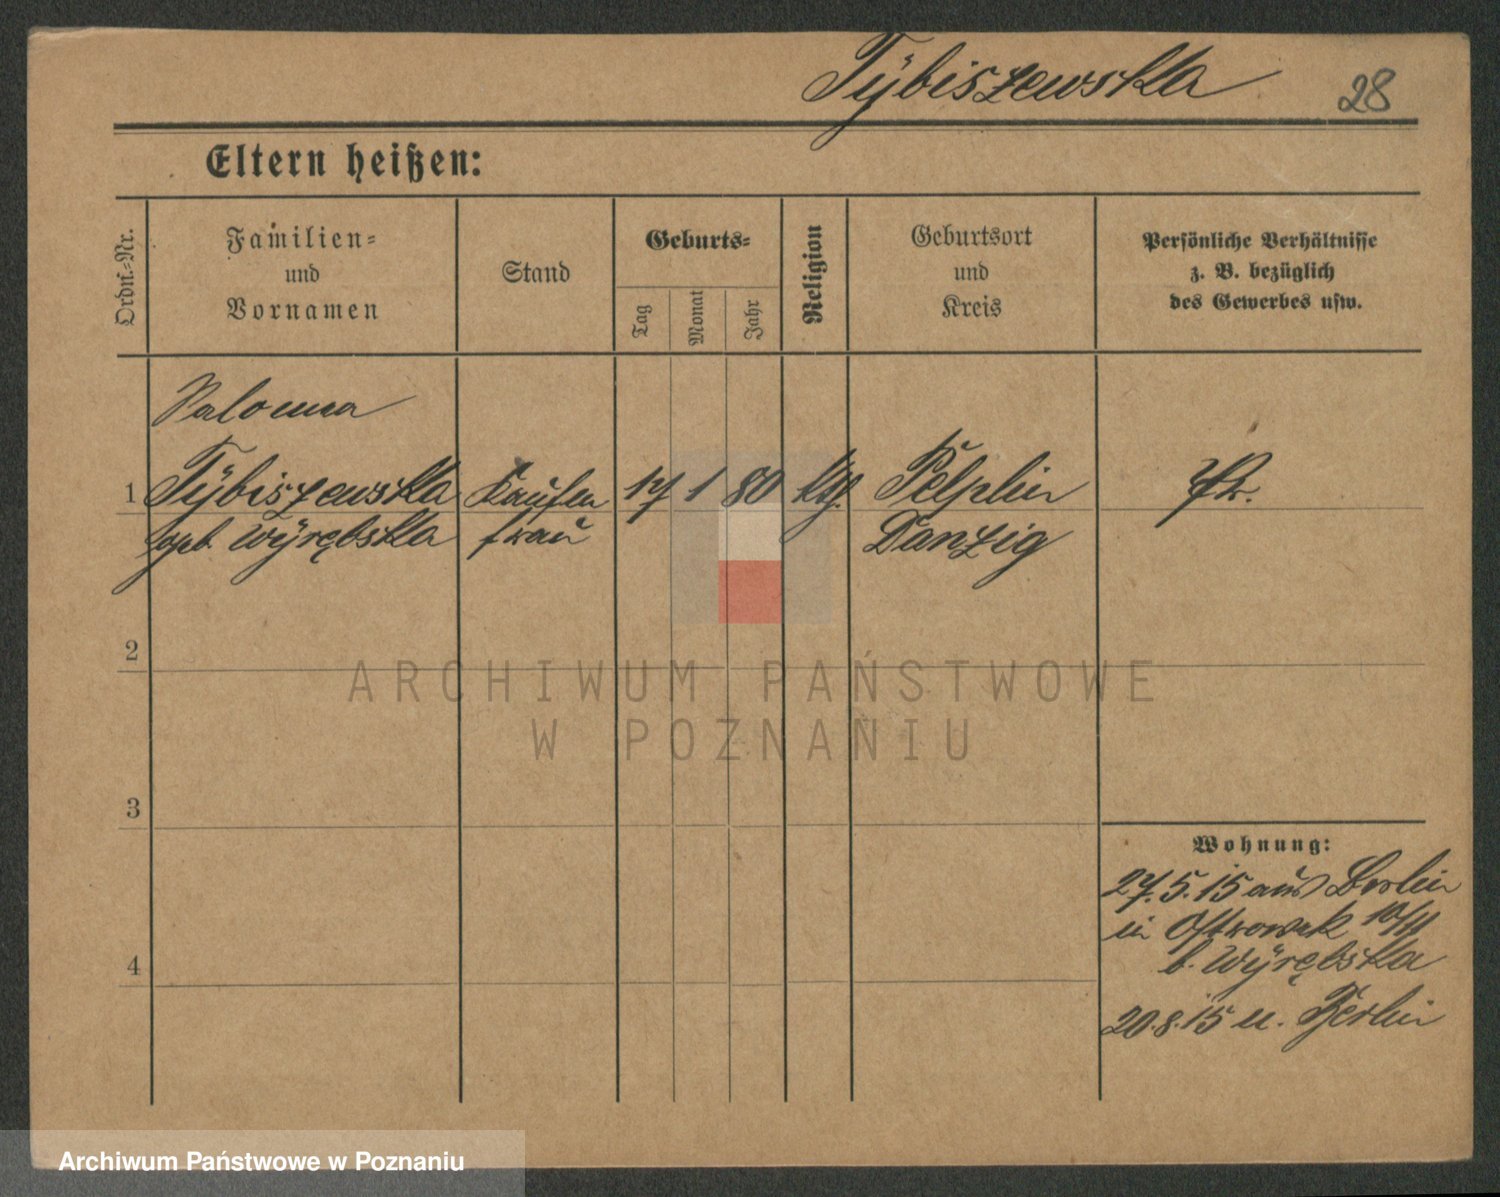 Tÿbiszewska 28
Eltern heißen:
Ordn.-Nr.
Familien-
und
Vornamen
Stand
Geburts-
Tag
Monat
Jahr
Religion
Geburtsort
und
Kreis
Persönliche Verhältnisse
z. B. bezüglich
des Gewerbes usw.
1 Tÿbiszewska Kaufm 17 1 80 ktg. Pelplin Pr.
geb. Wÿrębska frau Danzig
2
3
4
Wohnung:
27.5.15 aus Berlin
in Ostrowek 10/11
b. Wÿrębska
20.8.15 n. Berlin
ARCHIWUM PAŃSTWOWE
W POZNANIU
Archiwum Państwowe w Poznaniu